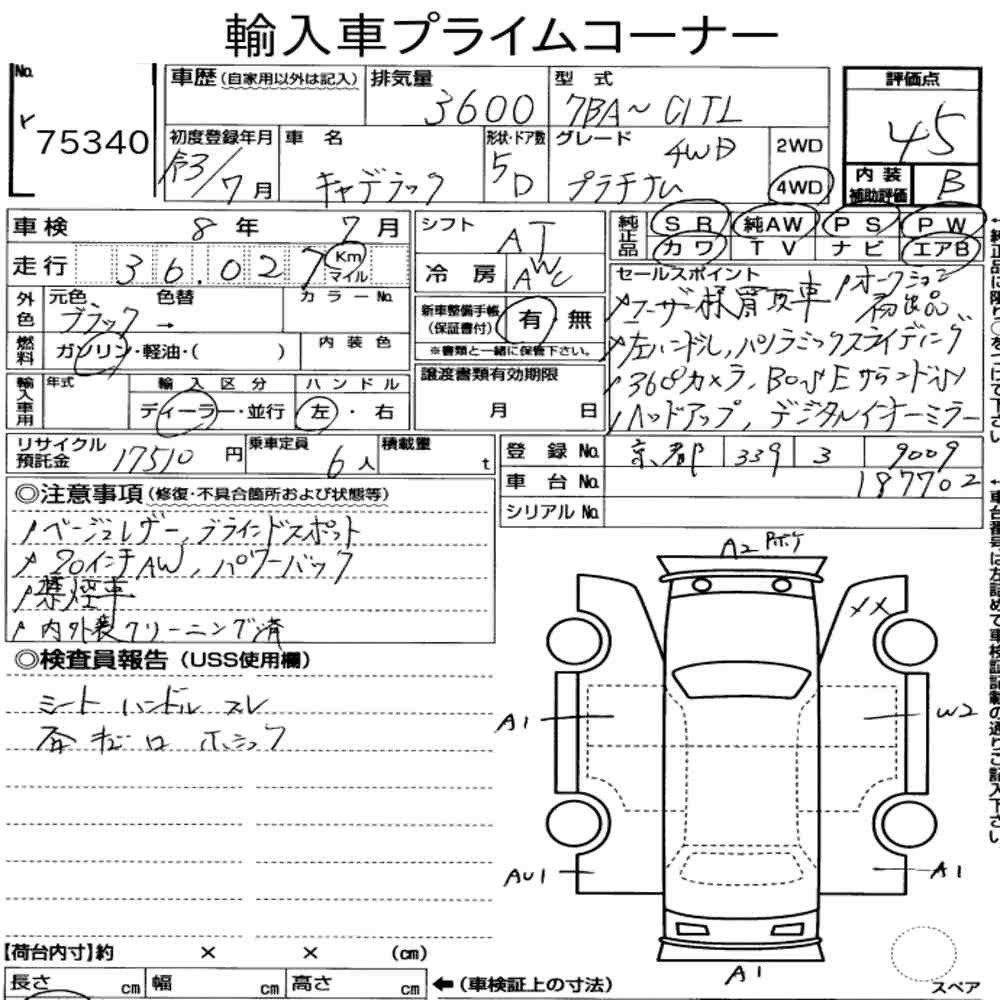 輸入車プライムコーナー
No.
75340
車歴 (自家用以外は記入)
排気量
3600
型式
7BA~C1TL
評価点
4.5
初度登録年月
令3/7月
車名
キャデラック
形状・ドア数
5D
グレード
4WD
プラチナム
2WD
4WD
内装補助評価
B
車検 8年 7月
走行 36,027 Km マイル
シフト AT
冷房 AWC
純正品
SR 純AW PS PW
カワ TV ナビ エアB
外色 元色 色替 カラーNo.
ブラック →
燃料 ガソリン・軽油・( )
内装色
新車整備手帳(保証書付) 有 無
※書類と一緒に保管下さい。
セールスポイント
ユーザー様買取車 オークション初出品
左ハンドル,パノラミックスライディング
360°カメラ,BOSEサラウンド
ヘッドアップ,デジタルインナーミラー
輸入車用 年式 輸入区分 ハンドル
ディーラー・並行 左・右
譲渡書類有効期限
月 日
リサイクル預託金 17510円
乗車定員 6人
積載量 t
登録No. 京都 339 3 9009
車台No. 187702
シリアルNo.
◎注意事項(修復・不具合箇所および状態等)
ベージュレザー,ブラインドスポット
20インチAW,パワーバック
禁煙車
内外装クリーニング済
◎検査員報告(USS使用欄)
シート ハンドル スレ
A2
XX
A1
W2
AU1
A1
A1
スペア
【荷台内寸】約 × × (cm)
長さ cm 幅 cm 高さ cm
←(車検証上の寸法)
←純正品に限り○をつけて下さい
←車台番号は左詰めで車検証記載の通りご記入下さい